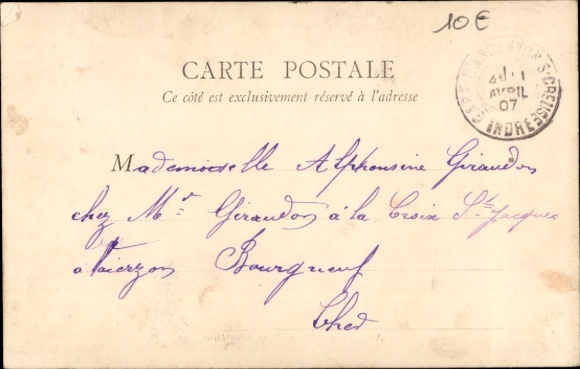 10€
GARE D'ARGENTON-S-CREUSE
AVRIL
07
INDRE
CARTE POSTALE
Ce côté est exclusivement réservé à l'adresse
Mademoiselle Alphonsine Giraudon
chez Mr Giraudon à la Croix St Jacques
a vierzon Bourgneuf
Cher